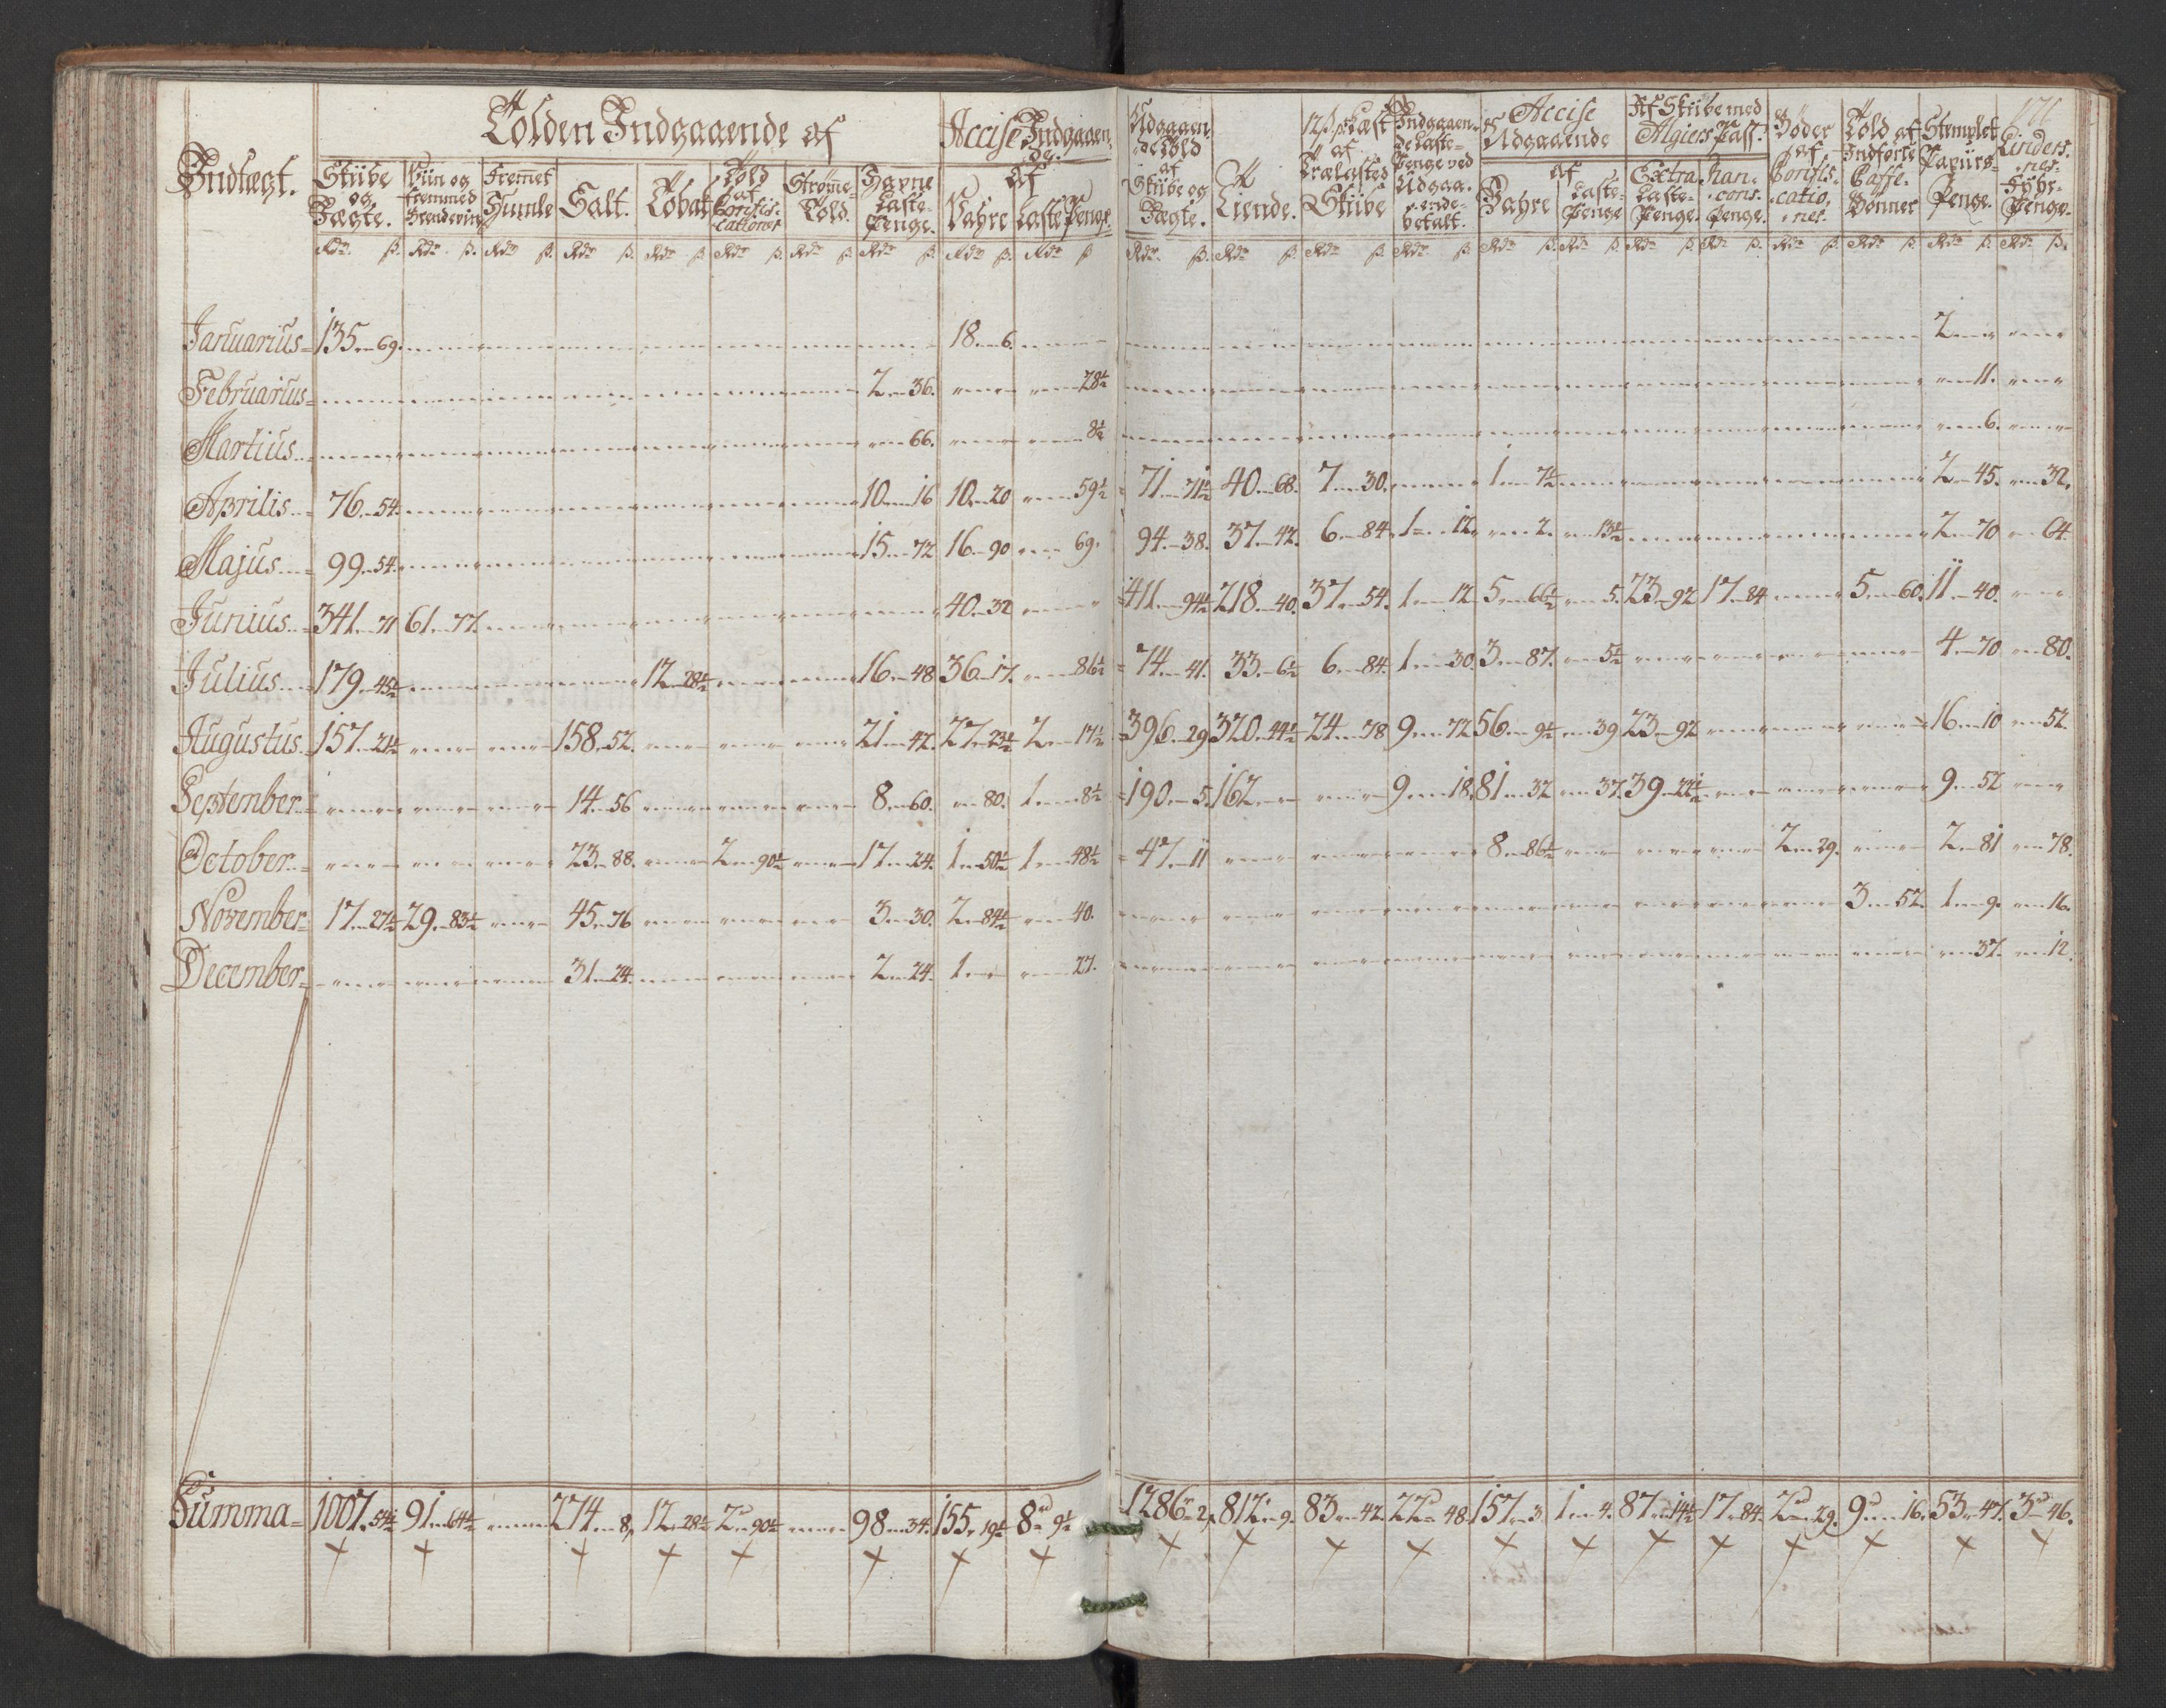 Indtægt.
Tolden Indgaaende af
Accise Indgaaen
de. af
Skiibe og Jægte.
Viin og fremmed Brendeviin
Fremet Humle
Salt.
Tobak
Told af Confiscationer
Strømme Told.
Havne Laste Penge.
Vahre
Laste Penge.
Udgaaende Told af Skiibe og Jægte.
Tiende.
af Trælasted Skiibe
Indgaaende Laste-Penge ved Udgaaende betalt.
Accise Udgaaende af
Vahre
Laste Penge
Af Skiibe med Algiers Pass.
Extra Laste-Penge.
Ran-cons. Penge.
Bøder af Confiscationer
Told af Indførte Caffe-Bønner
Stemplet Papiirs-Penge.
Rdr. ß. Rdr. ß. Rdr. ß. Rdr. ß. Rdr. ß. Rdr. ß. Rdr. ß. Rdr. ß. Rdr. ß. Rdr. ß. Rdr. ß. Rdr. ß. Rdr. ß. Rdr. ß. Rdr. ß. Rdr. ß. Rdr. ß. Rdr. ß. Rdr. ß. Rdr. ß. Rdr. ß. Rdr. ß.
Januarius 135 69 18 6 2
Februarius 2 36 28½ 11
Martius 66 8½ 6
Aprilis 76 54 10 16 10 20 59½ 71 71½ 40 68 7 30 1 7½ 2 45 32
Majus 99 54 15 72 16 90 69 94 38 37 42 6 84 1 12 2 13½ 2 70 64
Junius 341 71 61 77 40 32 411 94½ 218 40 37 54 1 12 5 66½ 5 23 92 17 84 5 60 11 40
Julius 179 45½ 12 28½ 16 48 36 17 86½ 74 41 33 6½ 6 84 1 30 3 87 5½ 4 70 80
Augustus 157 21½ 158 52 21 42 27 23½ 2 17½ 396 29 320 44½ 24 78 9 72 56 9½ 39 23 92 16 10 52
September 14 56 8 60 80 1 8½ 190 5 162 9 18 81 32 37 39 22½ 9 52
October 23 88 2 90½ 17 24 1 50½ 1 48½ 47 11 8 86½ 2 29 2 81 78
November 17 27½ 29 83½ 45 76 3 30 2 84½ 40 3 52 1 9 16
December 31 24 2 24 1 27 37 12
Summa 1007 54½ 91 64½ 274 8 12 28½ 2 90½ 98 34 155 19½ 8 9½ 1286 2 812 9 83 42 22 48 157 3 1 4 87 14½ 17 84 2 29 9 16 53 47 3 46